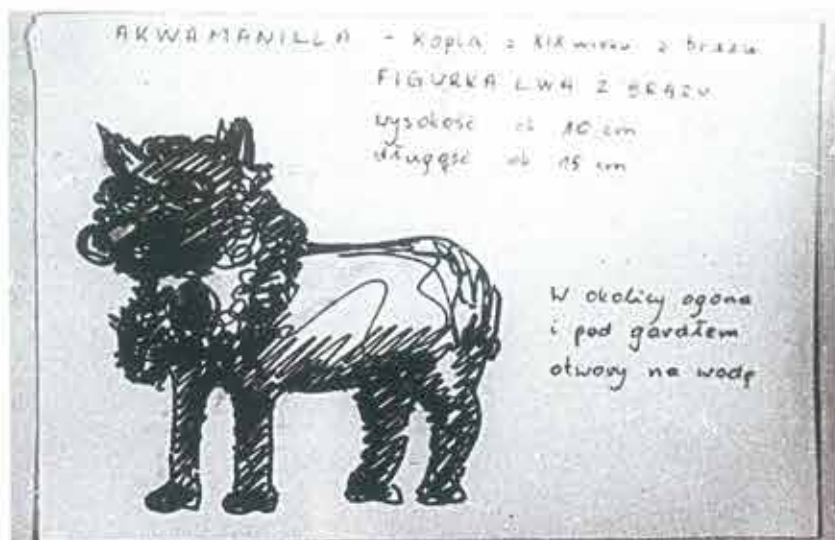 AKWAMANILLA - Kopia z XIX wieku z brązu
FIGURKA LWA Z BRĄZU
wysokość ok 10 cm
długość ok 15 cm
W okolicy ogona
i pod gardłem
otwory na wodę